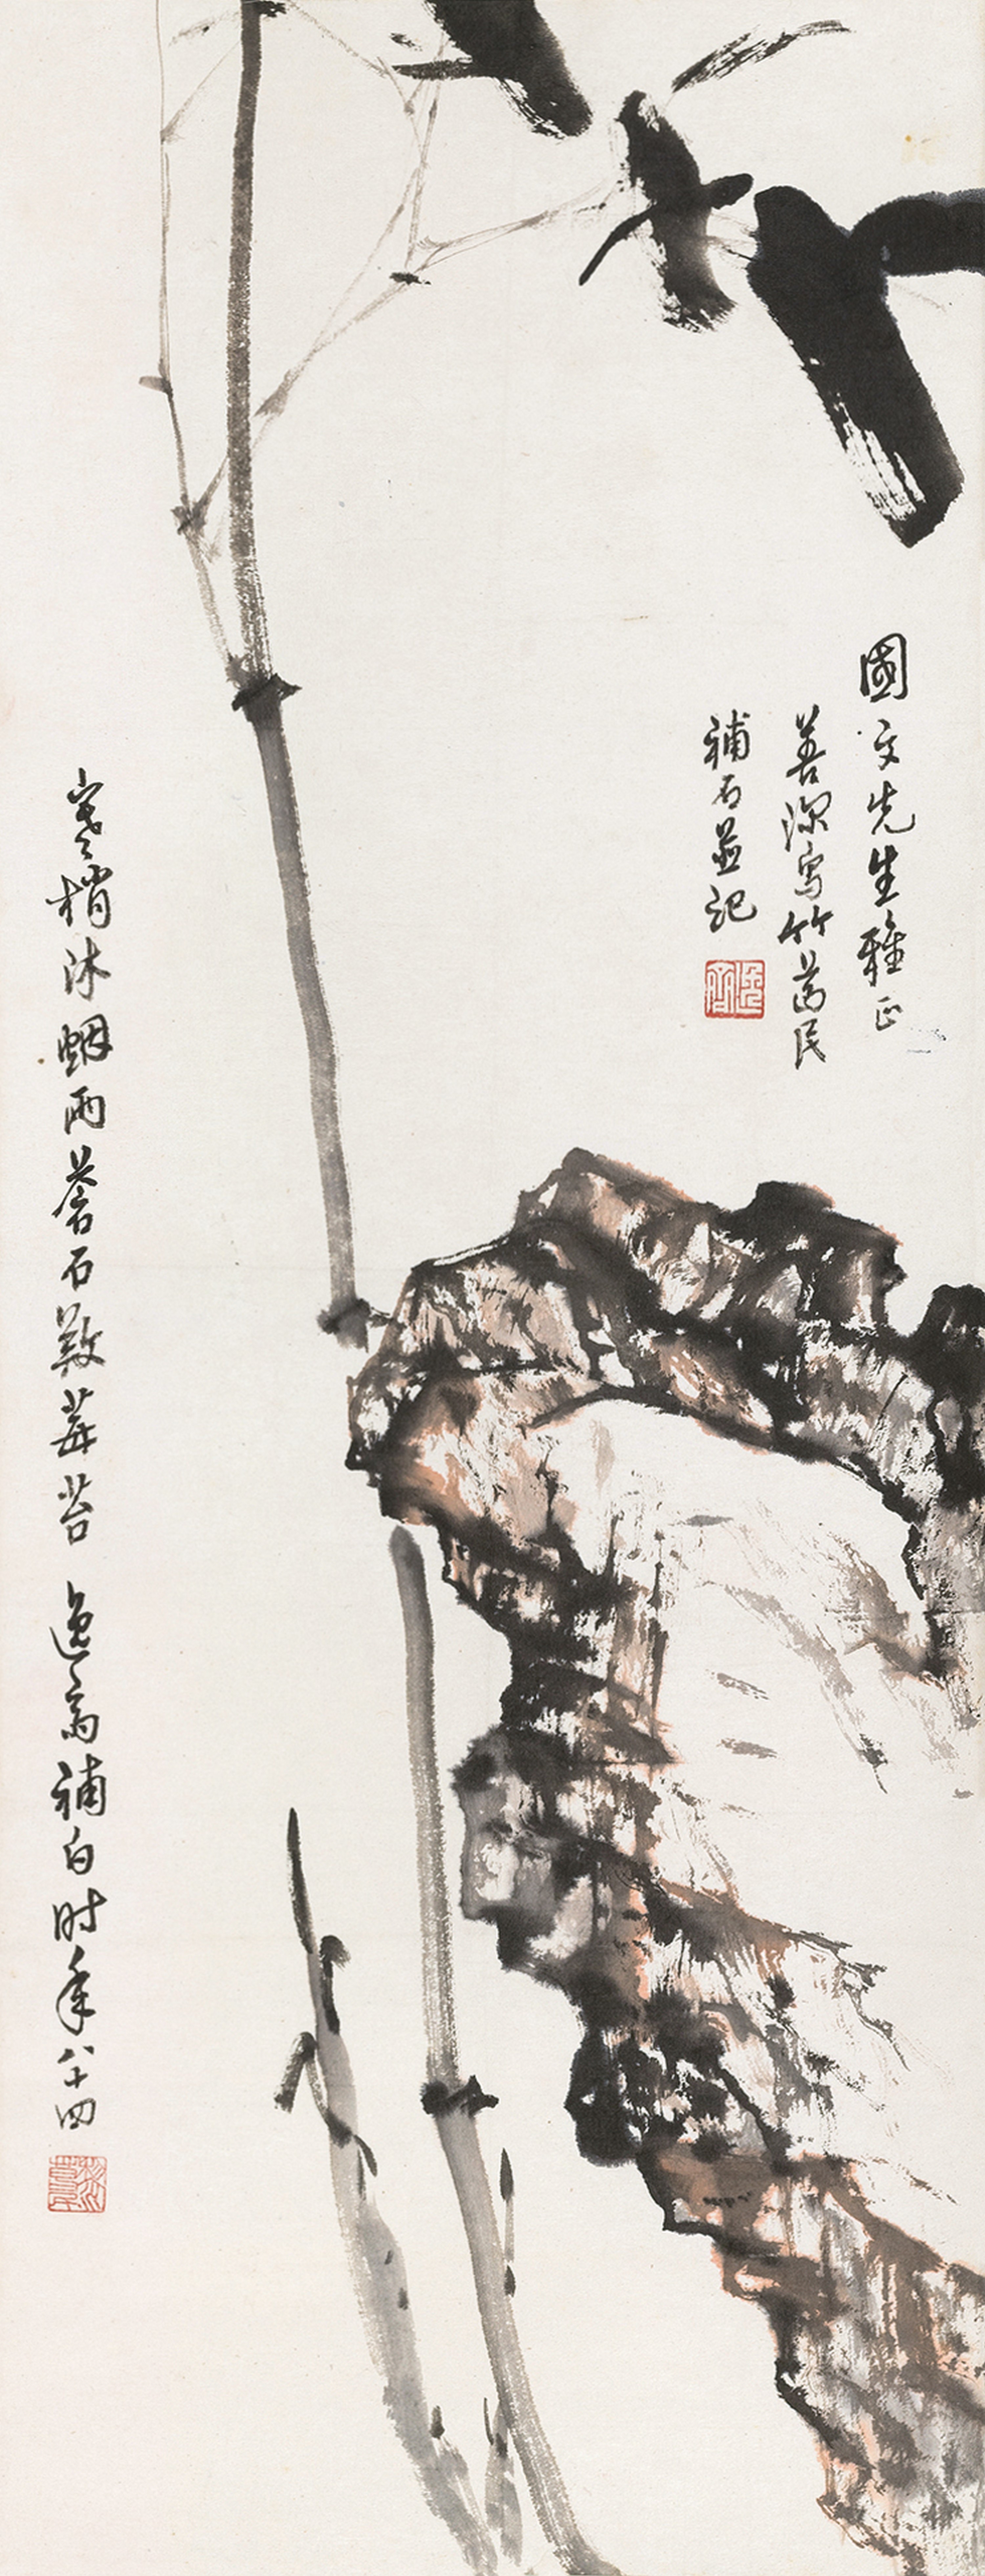 國文先生雅正
善深寫竹葛民
補石並記
寒梢沐烟雨蒼石散莓苔 逸齋補白时年八十四